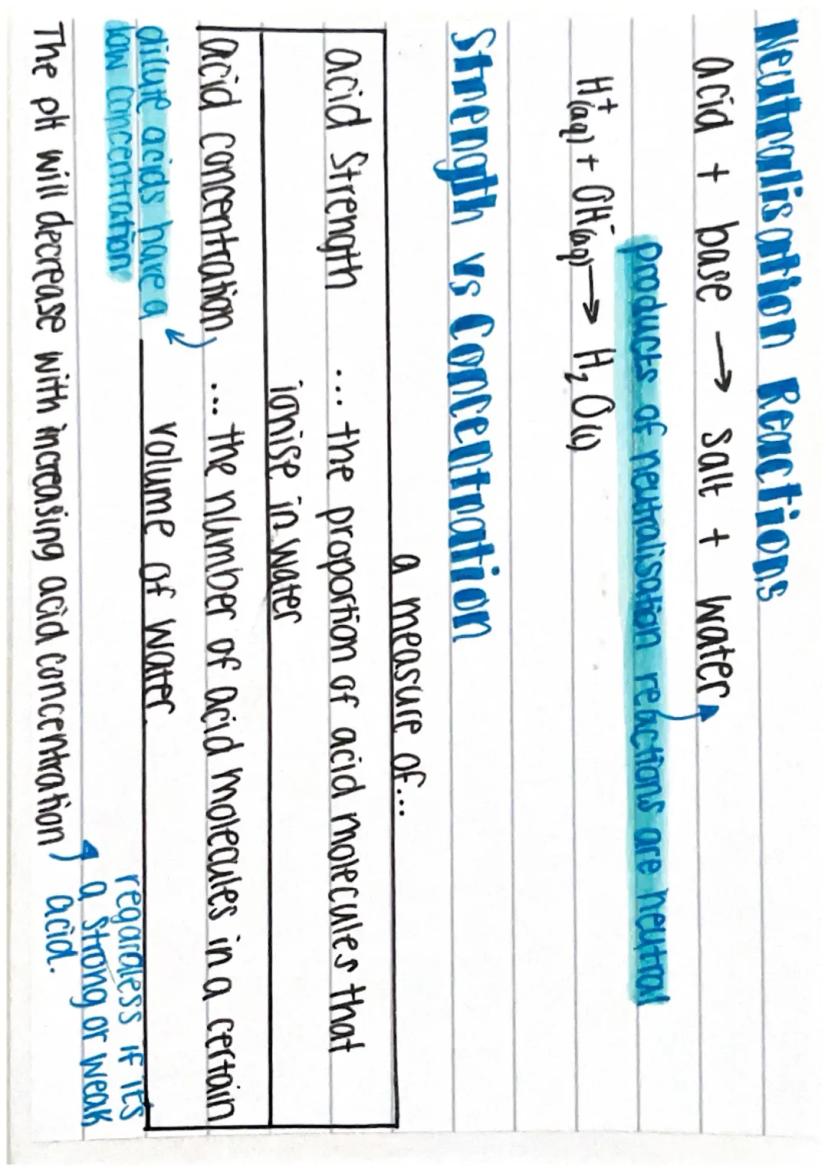 Neutralisation Reactions
acid + base → salt + water
products of neutralisation reactions are neutral
H⁺(aq) + OH⁻(aq) → H₂O(l)
Strength vs Concentration
a measure of...
acid strength ... the proportion of acid molecules that
ionise in water
acid concentration ... the number of acid molecules in a certain
volume of water.
dilute acids have a
low concentration
The pH will decrease with increasing acid concentration
regardless if its
a strong or weak
acid.